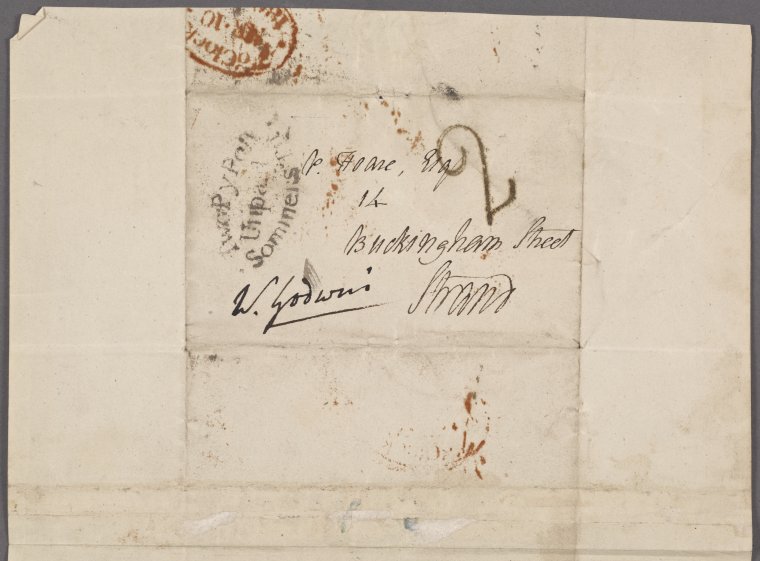 o'Clock
Two Py Post
Unpaid
Sommers
P. Hoare, Esq
2
14
Buckingham Street
Strand
W. Godwin